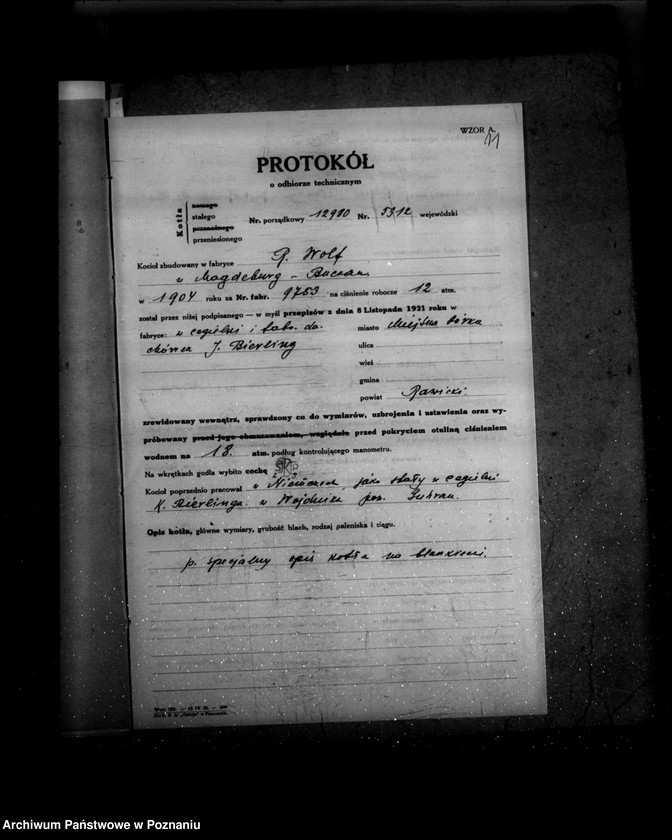 WZOR A.
11
PROTOKÓŁ
o odbiorze technicznym
Kotła
nowego
stałego
przenośnego
przeniesionego
Nr. porządkowy 12980 Nr. 5312 wojewódzki
Kocioł zbudowany w fabryce R. Wolf
w Magdeburg - Buckau
w 1904 roku za Nr. fabr. 9753 na ciśnienie robocze 12 atm.
został przez niżej podpisanego — w myśl przepisów z dnia 8 Listopada 1921 roku w
fabryce: w cegielni i fabr. da-
chówek J. Bierling
miasto Miejska Górka
ulica
wieś
gmina
powiat Rawicki.
zrewidowany wewnątrz, sprawdzony co do wymiarów, uzbrojenia i ustawienia oraz wy-
próbowany przed jego obmurowaniem, względnie przed pokryciem otuliną ciśnieniem
wodnem na 18. atm. podług kontrolującego manometru.
Na wkrętkach godła wybito cechę
Kocioł poprzednio pracował w Niemczech, jako stały w cegielni
K. Bierlinga w
Opis kotła, główne wymiary, grubość blach, rodzaj paleniska i ciągu.
p. specjalny opis kotła na blankiecie.